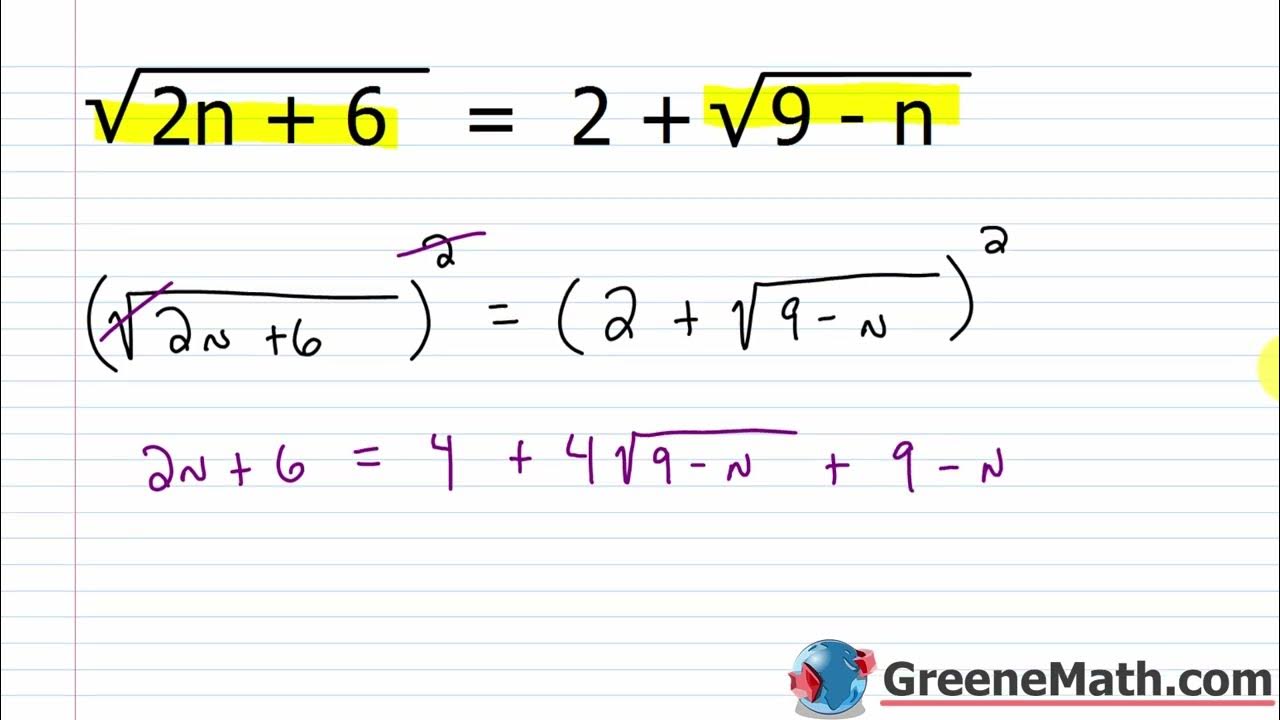 √2n + 6 = 2 + √9 - n
(√2n + 6)² = (2 + √9 - n)²
2n + 6 = 4 + 4√9 - n + 9 - n
GreeneMath.com